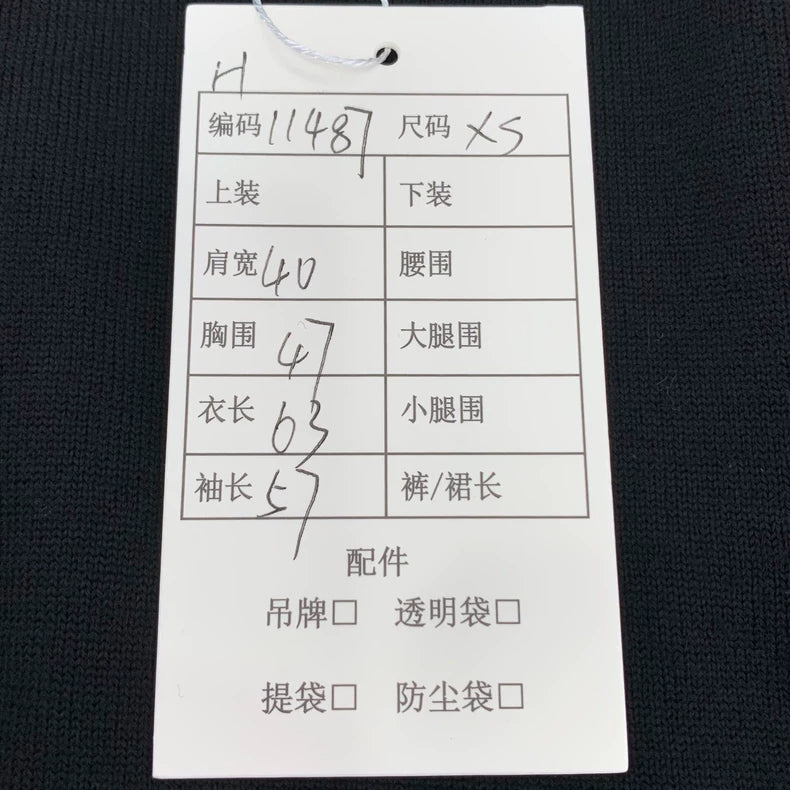 H
编码 11487 尺码 XS
上装 下装
肩宽 40 腰围
胸围 47 大腿围
衣长 63 小腿围
袖长 57 裤/裙长
配件
吊牌□ 透明袋□
提袋□ 防尘袋□